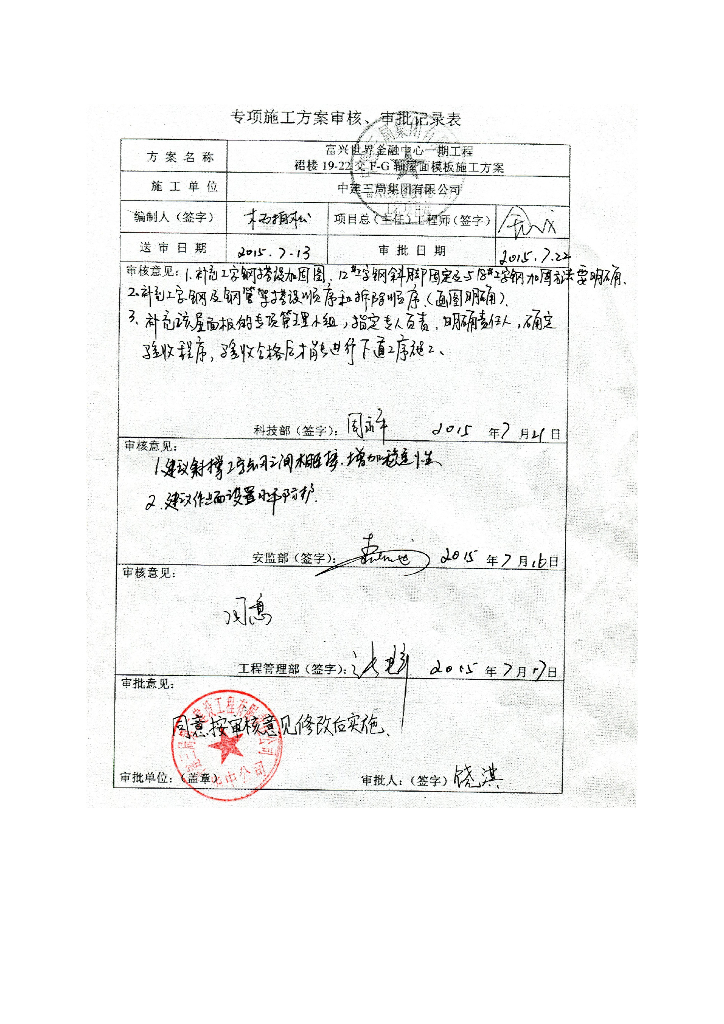 专项施工方案审核、审批记录表
方案名称
富兴世界金融中心一期工程
裙楼 19-22 交 F-G 轴屋面模板施工方案
施工单位
中建三局集团有限公司
编制人（签字）
项目总（主任）工程师（签字）
送审日期
2015.7.13
审批日期
2015.7.22
审核意见：1.补充工字钢搭设加固图，12#工字钢斜脚固定及与18#工字钢加固方法要明确.
2.补充工字钢及钢管等搭设顺序和拆除顺序（画图明确）.
3、补充该屋面板的专项管理小组，指定专人负责，明确责任人，确定
验收程序，验收合格后才能进行下道工序施工、
科技部（签字）： 2015 年 7 月 21 日
审核意见：
1.建议斜撑工字钢之间相连接，增加稳定性、
2.建议作业面设置水平防护.
安监部（签字）： 2015 年 7 月 16 日
审核意见：
同意
工程管理部（签字）： 2015 年 7 月 17 日
审批意见：
同意按审核意见修改后实施、
审批单位：（盖章） 审批人：（签字）饶淇